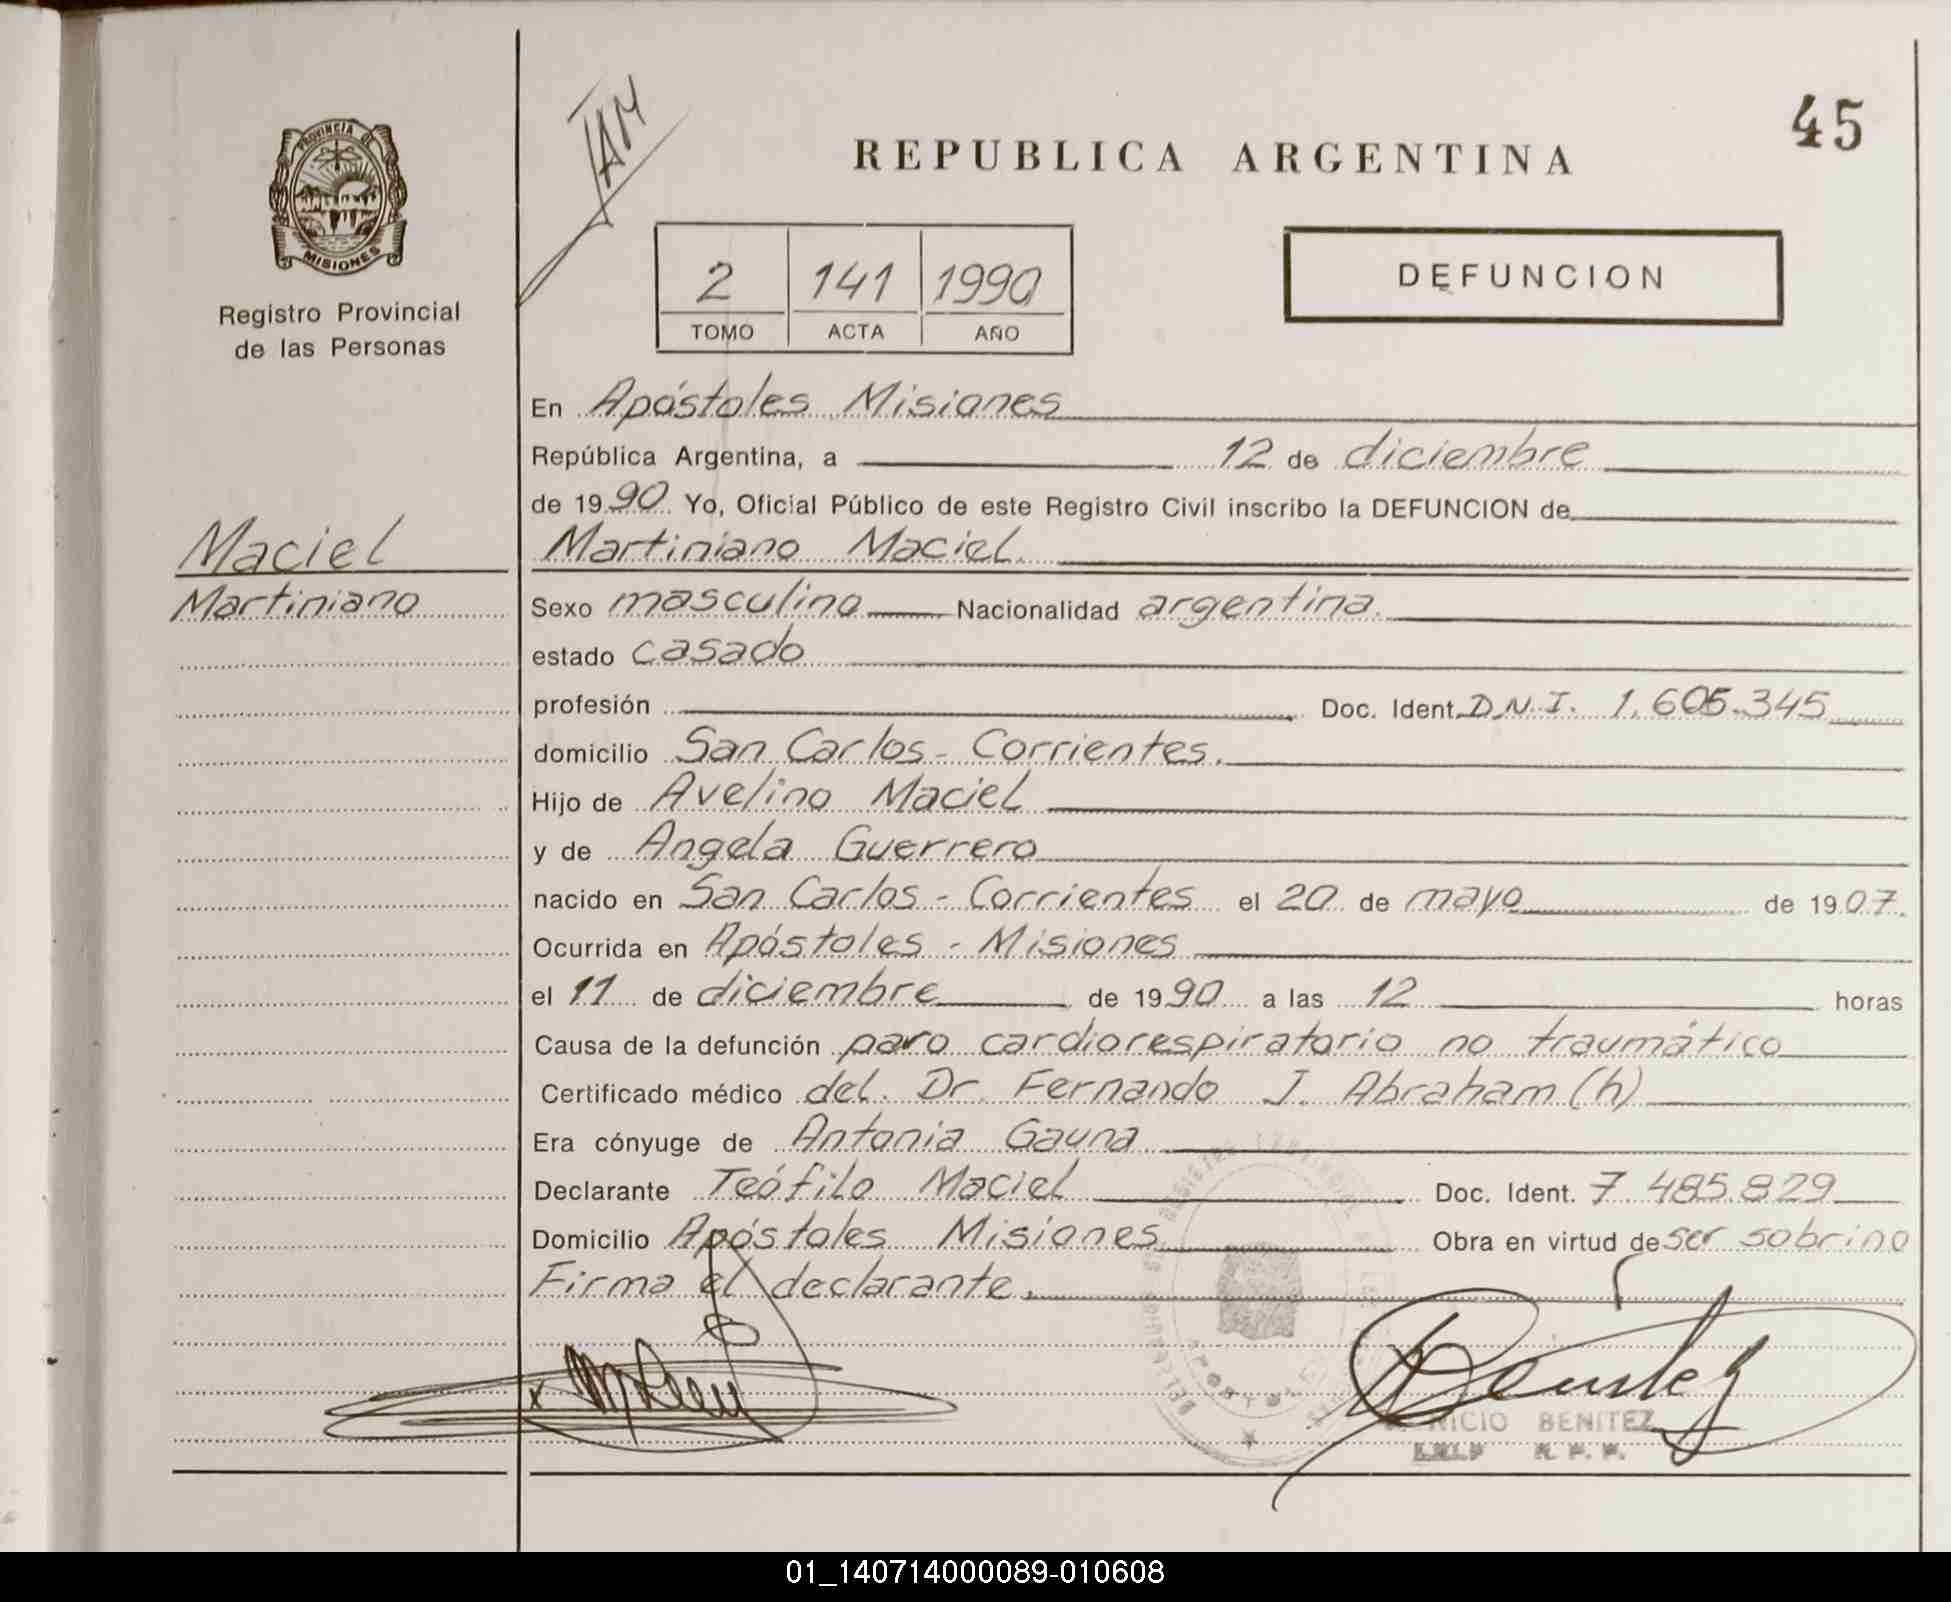 45
REPUBLICA ARGENTINA
PROVINCIA DE
MISIONES
Registro Provincial
de las Personas
2 141 1990
TOMO ACTA AÑO
DEFUNCION
En Apóstoles Misiones
República Argentina, a 12 de diciembre
de 1990 Yo, Oficial Público de este Registro Civil inscribo la DEFUNCION de
Maciel
Martiniano
Martiniano Maciel.
Sexo masculino Nacionalidad argentina.
estado casado
profesión Doc. Ident. D.N.I. 1.605.345
domicilio San Carlos - Corrientes.
Hijo de Avelino Maciel
y de Angela Guerrero
nacido en San Carlos - Corrientes el 20 de mayo de 1907.
Ocurrida en Apóstoles - Misiones
el 11 de diciembre de 1990 a las 12 horas
Causa de la defunción paro cardiorespiratorio no traumático
Certificado médico del. Dr. Fernando J. Abraham (h)
Era cónyuge de Antonia Gauna
Declarante Teófilo Maciel Doc. Ident. 7 485.829
Domicilio Apóstoles Misiones Obra en virtud de ser sobrino
Firma el declarante.
BENITEZ
01_140714000089-010608